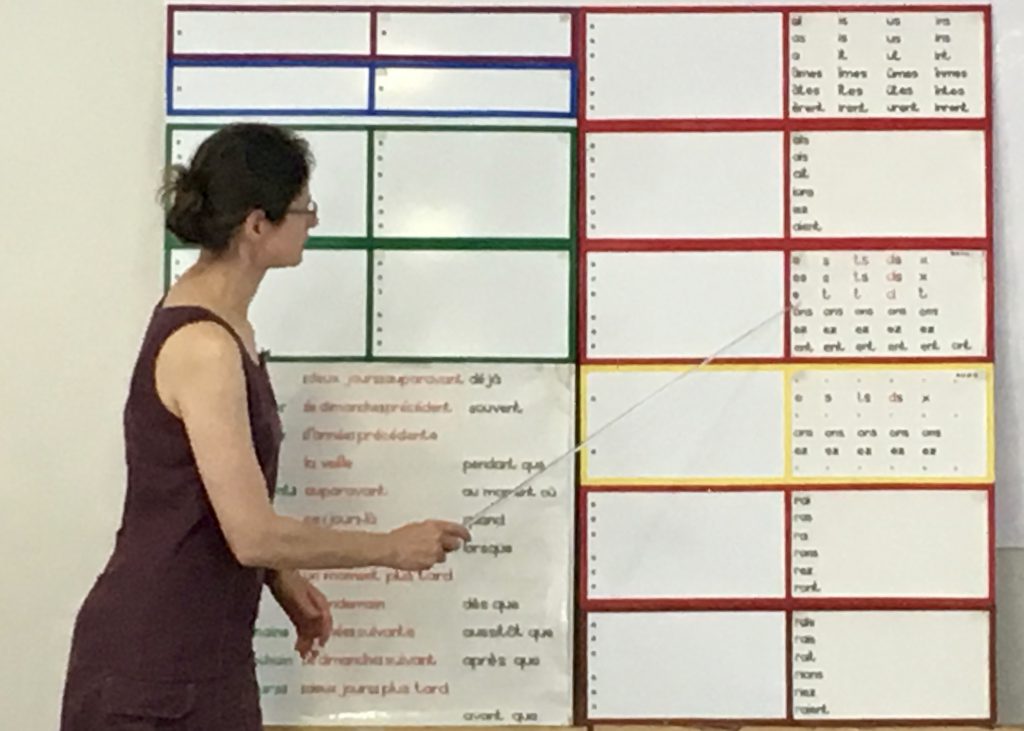 ai is us ins
as is us ins
a it ut int
âmes îmes ûmes înmes
âtes îtes ûtes întes
èrent irent urent inrent
ais
ais
ait
ions
iez
aient
e s ts ds x
es s ts ds x
e t t d t
ons ons ons ons ons
ez ez ez ez ez
ent ent ent ent ent ont
e s ts ds x
ons ons ons ons ons
ez ez ez ez ez
rai
ras
ra
rons
rez
ront
rais
rais
rait
rions
riez
raient
deux jours auparavant déjà
le dimanche précédent souvent
l'année précédente
la veille pendant que
auparavant au moment où
jours-là quand
lorsque
un moment plus tard
dès que
suivante aussitôt que
le dimanche suivant après que
deux jours plus tard
avant que